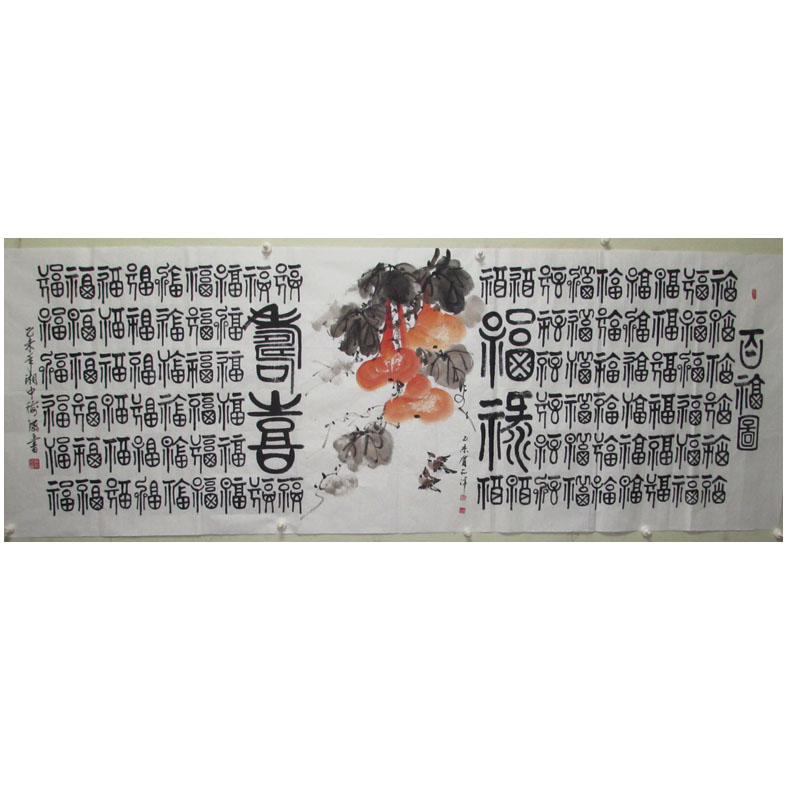 百福圖
福福福福福福
福福福福福福
福福福福福福
福福福福福福
福福福福福福
福福福福福福
福福福福福福
福福
福祿
福福
乙未
福福
壽喜
福福
福福福福福福
福福福福福福
福福福福福福
福福福福福福
福福福福福福
福福福福福福
福福福福福福
乙未年湘中書